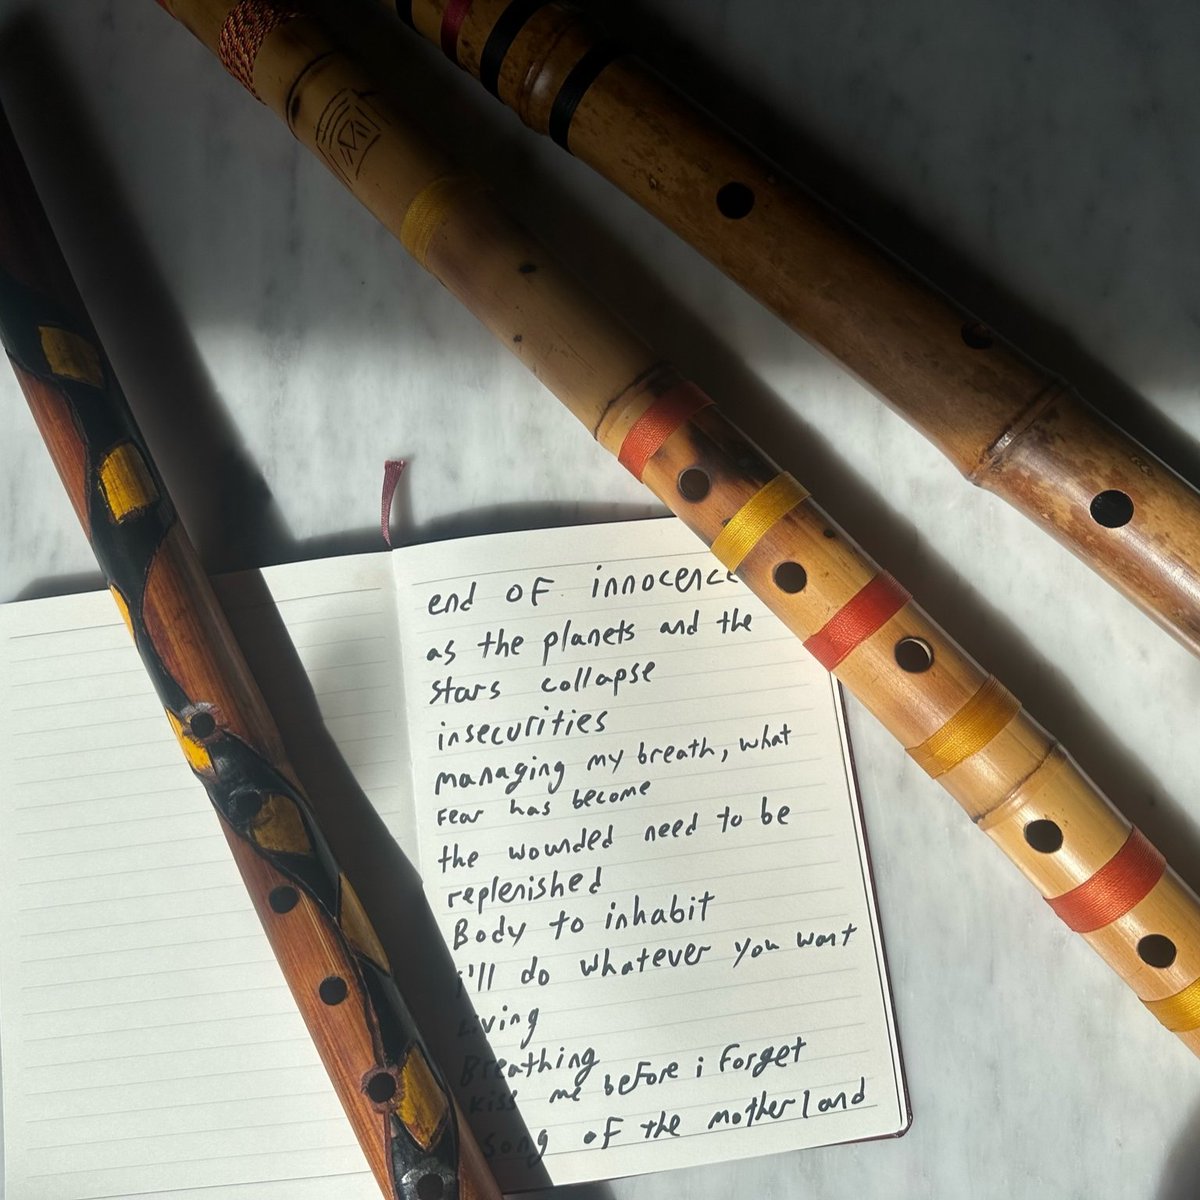 end of innocence
as the planets and the
stars collapse
insecurities
managing my breath, what
fear has become
the wounded need to be
replenished
Body to inhabit
i'll do whatever you want
Living
Breathing
kiss me before i forget
song of the motherland